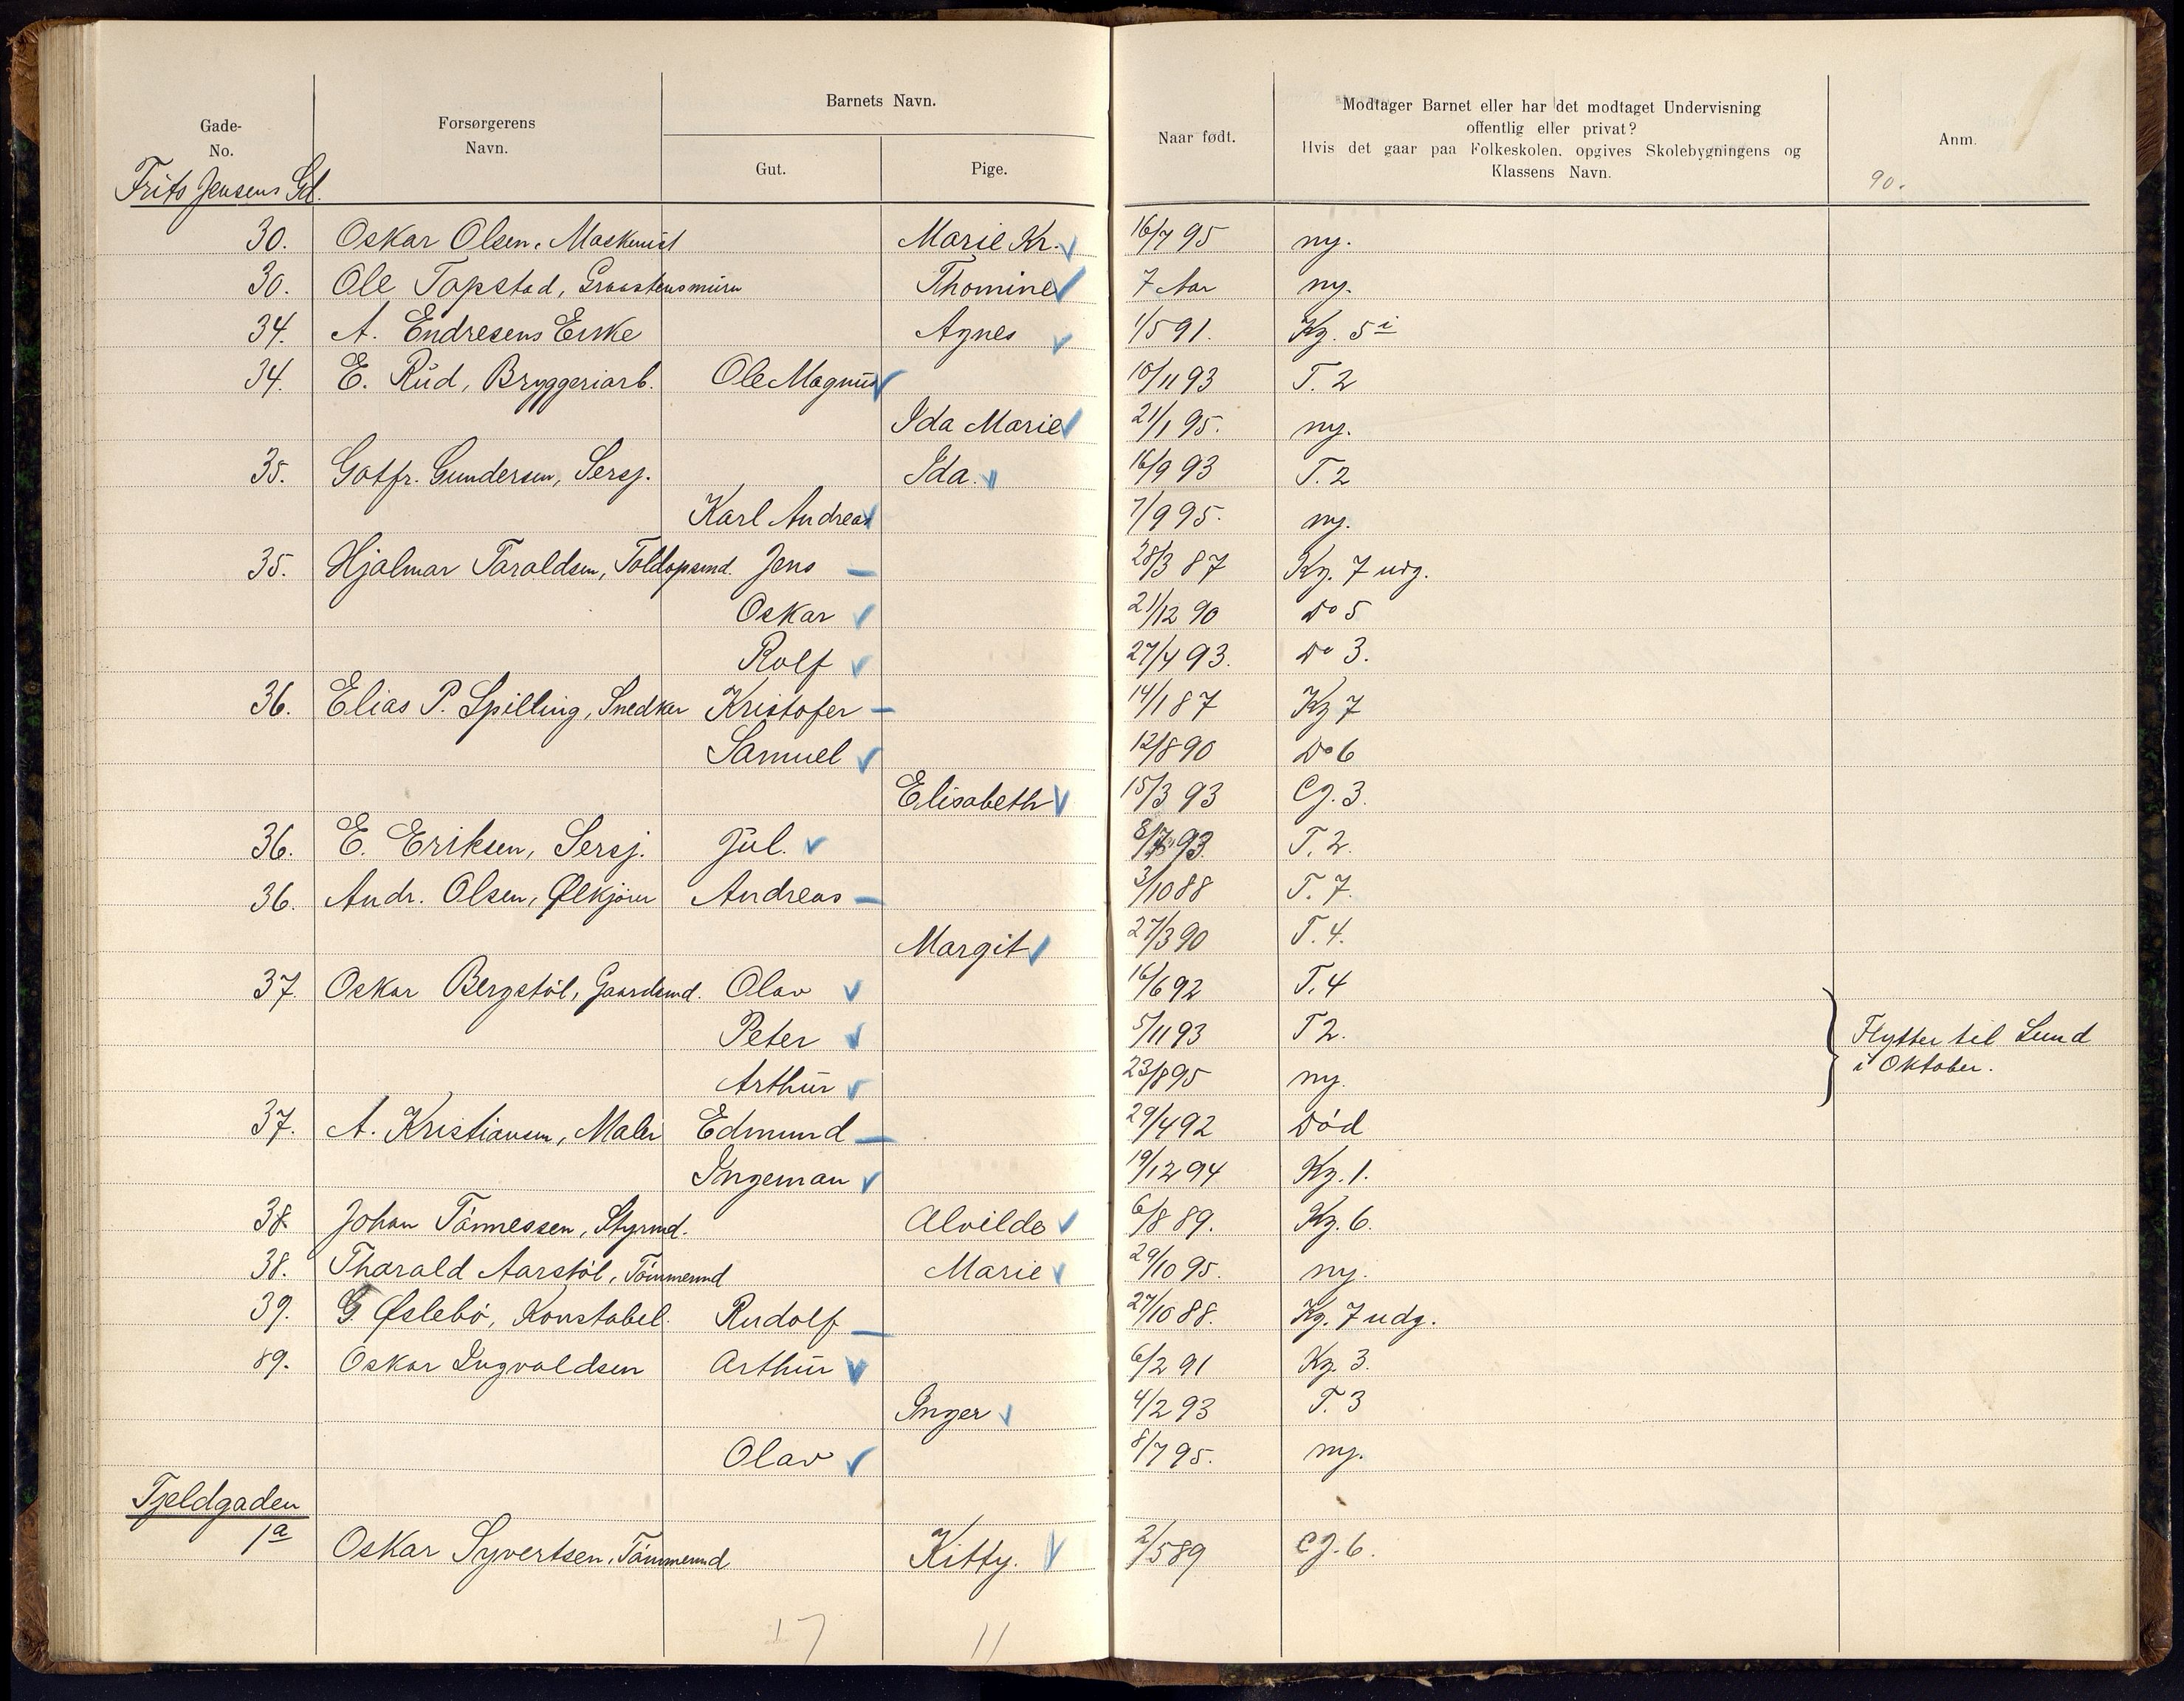 Gade-
No.
Forsørgerens
Navn.
Barnets Navn.
Gut.
Pige.
Naar født.
Modtager Barnet eller har det modtaget Undervisning
offentlig eller privat?
Hvis det gaar paa Folkeskolen, opgives Skolebygningens og
Klassens Navn.
Anm.
90.
Frits Jensens Gd.
30. Oskar Olsen, Maskinist Marie Kr. 16/7 95 ny.
30. Ole Topstad, Graastensmurer Thomine 7 Aar ny.
34. A. Endresens Enke Agnes 1/5 91. Kg. 5 i
34. E. Rud, Bryggeriarb. Ole Magnus 10/11 93 T. 2
Ida Marie 21/1 95. ny.
35. Gotfr. Gundersen, Sersj. Ida. 16/9 93 T. 2
Karl Andreas 7/9 95. ny.
35. Hjalmar Taraldsen, Toldopsmd. Jens 28/3 87 Kg. 7 udg.
Oskar 21/12 90 Do 5
Rolf 27/4 93. Do 3.
36. Elias P. Spilling, Snedker Kristofer 14/1 87 Kg 7
Samuel 12/8 90 Do 6
Elisabeth 15/3 93 Cg. 3.
36. E. Eriksen, Sersj. Jul. 93. T. 2.
36. Andr. Olsen, Ølkjører Andreas 3/10 88 T. 7.
Margit 27/3 90 T. 4.
37. Oskar Bergstøl, Gaardsmd. Olav 16/6 92 T. 4
Peter 5/11 93 T 2.
Arthur 23/8 95 ny.
Flytter til Lund
i Oktober.
37. A. Kristiansen, Maler Edmund 29/4 92 Død
Ingeman 19/12 94 Kg. 1.
38 Johan Tønnessen, Styrmd. Alvilde 6/8 89. Kg. 6.
38. Tharald Aarstøl, Tømmermd Marie 29/10 95. ny.
39. G. Øslebø, Konstabel. Rudolf 27/10 88. Kg. 7 udg.
89. Oskar Ingvaldsen Arthur 6/2 91 Kg. 3.
Inger 4/2 93 T. 3
Olav 8/7 95. ny.
Fjeldgaden
1a Oskar Syvertsen, Tømmermd Kitty. 2/5 89 Cg. 6.
17 11